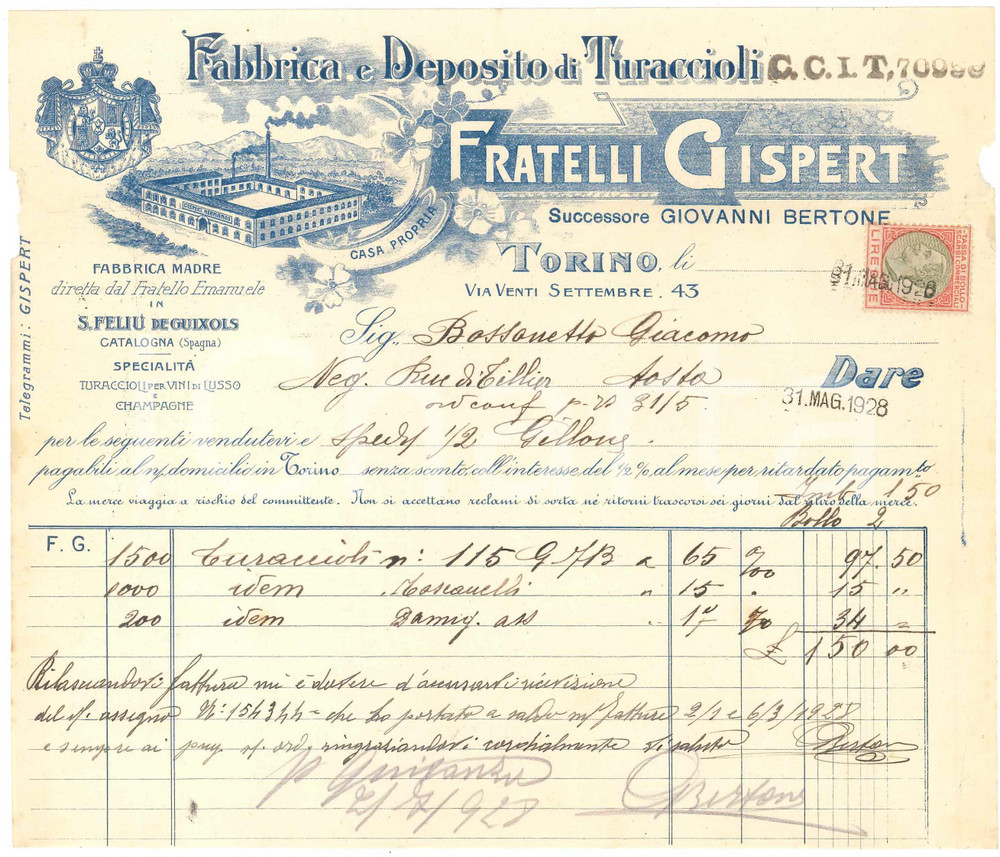 Fabbrica e Deposito di Turaccioli C.C.I.T. 70999
FRATELLI GISPERT
Successore GIOVANNI BERTONE
CASA PROPRIA
TORINO, li
VIA VENTI SETTEMBRE. 43
TASSA DI BOLLO
LIRE DUE
31.MAG.1928
Telegrammi: GISPERT
FABBRICA MADRE
diretta dal Fratello Emanuele
IN
S. FELIÚ DE GUIXOLS
CATALOGNA (Spagna)
SPECIALITÀ
TURACCIOLI PER VINI DI LUSSO
E
CHAMPAGNE
Sig. Bossonetto Giacomo
Neg. Rue di Tillier Aosta
Dare
31/5.
31.MAG.1928
per le seguenti vendutevi e
pagabili al n/ domicilio in Torino senza sconto, coll'interesse del ½ % al mese per ritardato pagam.to
La merce viaggia a rischio del committente. Non si accettano reclami di sorta né ritorni trascorsi sei giorni dal ritiro della merce.
Imb. 1.50
Bollo 2
F. G. 1500 Turaccioli n: 115 a 65 %00 97.50
1000 idem " 15 " 15 "
200 idem Damig. " 17 % 34 =
£ 150 00
Rilasciandovi fattura mi è dovere d'accusarvi ricevizione
del v/ assegno N: 154344 = che ho portato a saldo m/ fatture 2/1 e 6/3/1928
e sempre ai v/ ord. ringraziandovi cordialmente vi saluto Bertone
p. Quitanza
2/7/928 Bertone